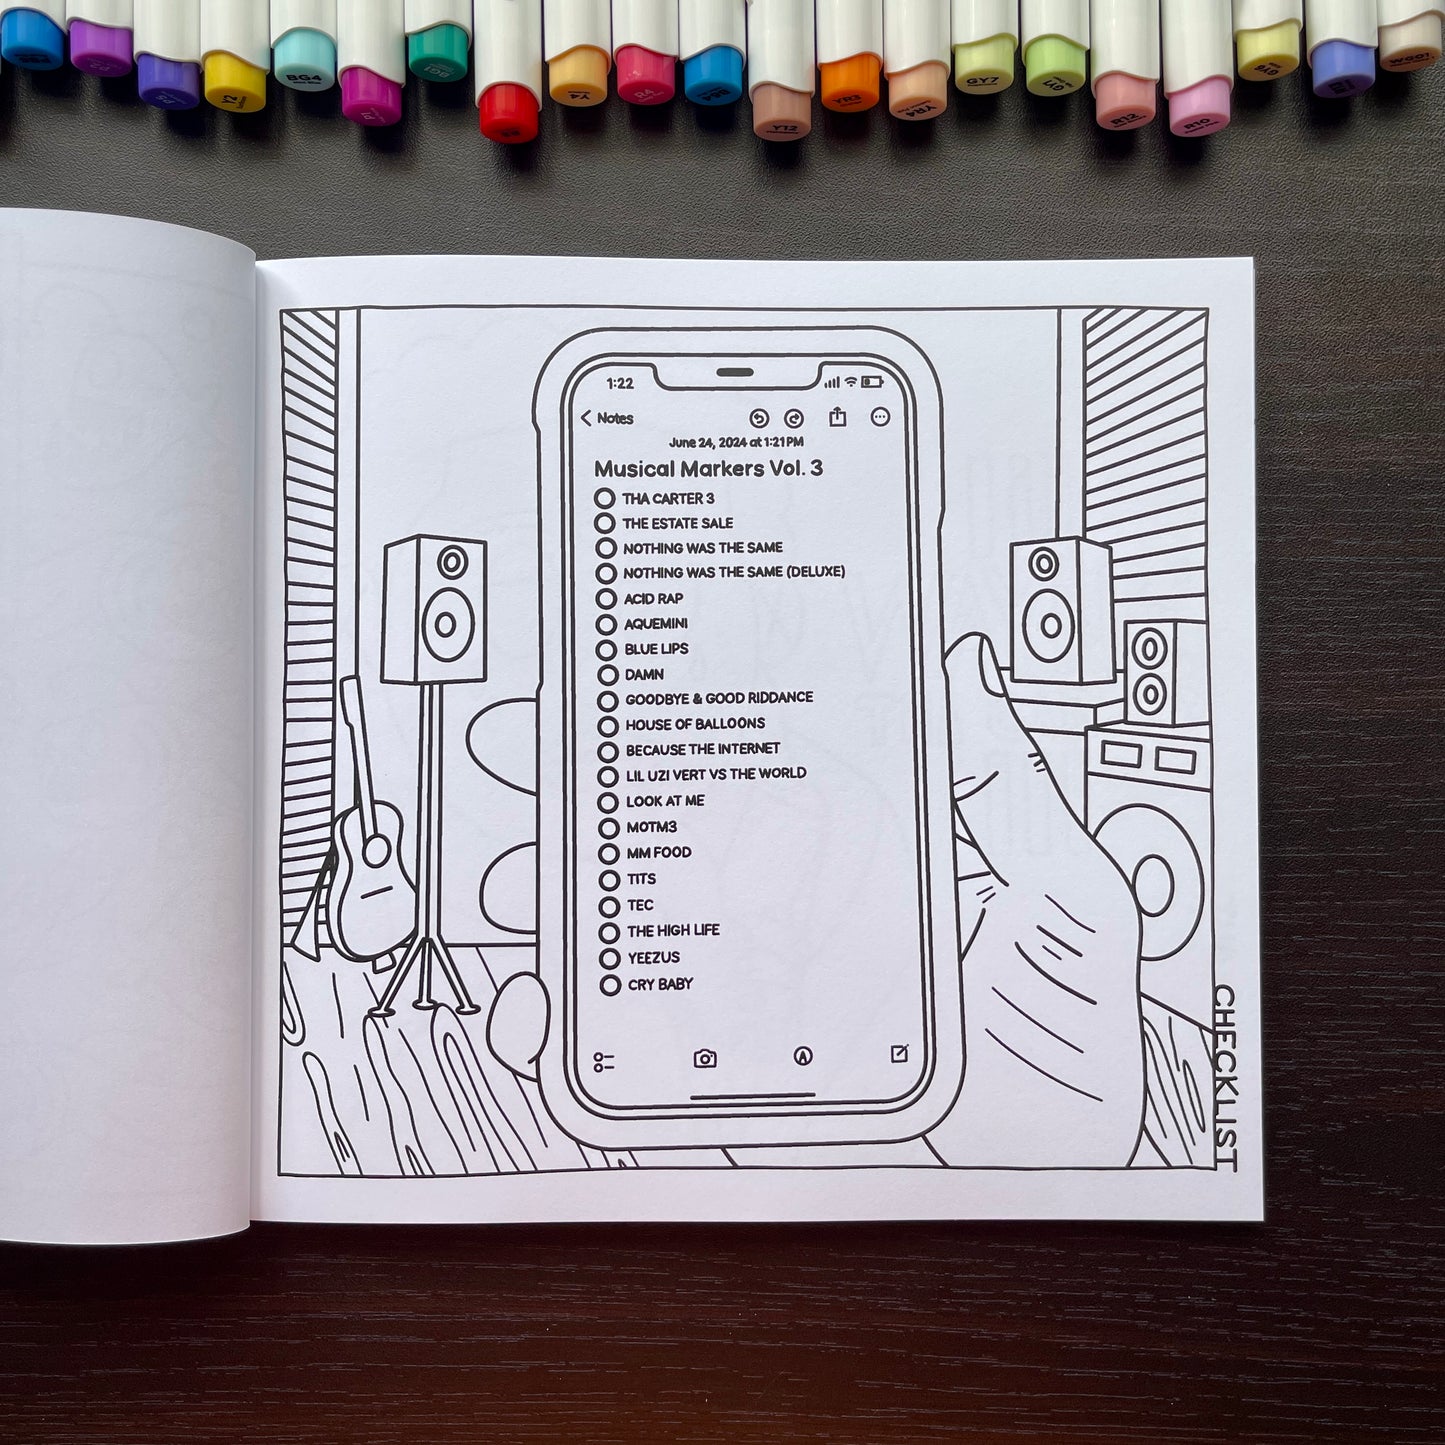 Y2
BG4
BG1
Y4
R4
Y12
YR3
YR4
GY7
R12
R10
WG01
1:22
Notes
June 24, 2024 at 1:21 PM
Musical Markers Vol. 3
THA CARTER 3
THE ESTATE SALE
NOTHING WAS THE SAME
NOTHING WAS THE SAME (DELUXE)
ACID RAP
AQUEMINI
BLUE LIPS
DAMN
GOODBYE & GOOD RIDDANCE
HOUSE OF BALLOONS
BECAUSE THE INTERNET
LIL UZI VERT VS THE WORLD
LOOK AT ME
MOTM3
MM FOOD
TITS
TEC
THE HIGH LIFE
YEEZUS
CRY BABY
CHECKLIST